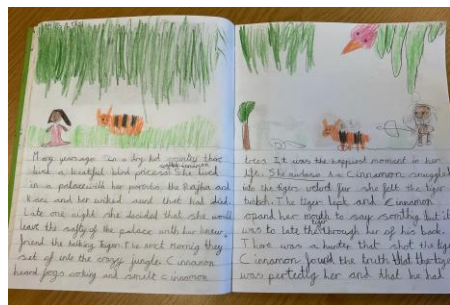 Many years ago in a dry hot country there
lived a beutiful blind princess. She lived
in a palace with her perents, the Rajha and
Rani and her wicked aunt that had died.
Late one night she decided that she would
leave the safty of the palace with her
friend the talking tiger. The next mornig they
set of into the crazy jungle. Cinnamon
heard frogs and smelt cinnamon
trees. It was the happiest moment in her
life. As Cinnamon snuggled
into the tigers velvet fur she felt the tiger
twitch. The tiger lept and Cinnamon
opand her mouth to say somthing but it
was to late the tiger through her of his back.
There was a hunter that shot the tiger
Cinnamon found the truth that the tiger
was pertectig her and that he had